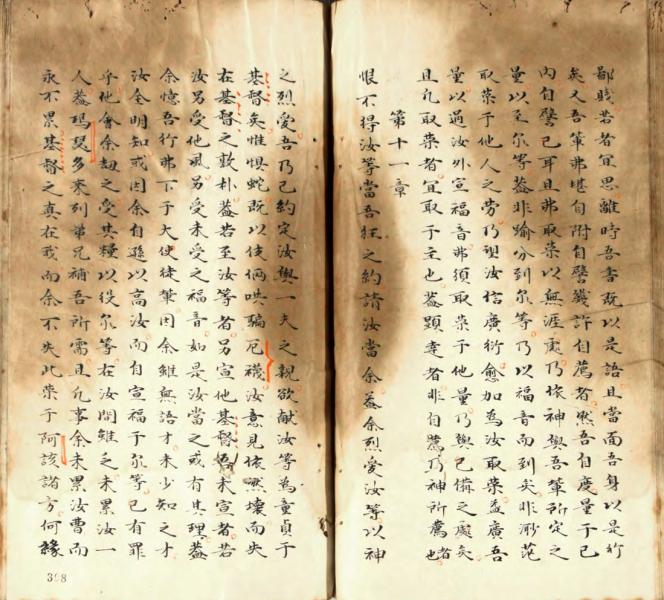 鄙賤若者宜思離時吾書既以是語且當面吾身以是行
矣又吾輩弗堪自附自譬幾許自薦者然吾自度量于己
內自譬己耳且弗取榮以無涯處乃依神與吾輩所定之
量以至尔等葢非踰分到尔等乃以福音而到矣非范
取榮于他人之劳乃理汝信廣衍愈加為汝取榮益廣吾
量以過汝外宣福音弗須取榮于他量乃與己備之處矣
且凢取榮者宜取于主也葢顕達者非自薦乃神所薦者也
第十一章
恨不得汝等當吾狂之約請汝當余葢余烈愛汝等以神
之烈愛吾乃已約定汝與一夫之親欲献汝等為童貞于
基督矣惟惧蛇既以使俩哄騙厄襪汝意見依然壊而失
在基督之敦朴葢若至汝等者另宣他基督吾未宣者若
汝另受他風另受未受之福音如是汝當之或有其理葢
余憶吾行弗下于大使徒輩因余雖無語才未少知之才
汝全明知或因余自孫以高汝而自宣福于尔等已有罪
乎他會余刼之受其糧以役尔等在汝間雖乏未累汝一
人葢瑪瑟多來列弟兄補吾所需且凢事余未累汝曹而
永不累基督之真在我而余不失此榮于阿該諸方何緣
398